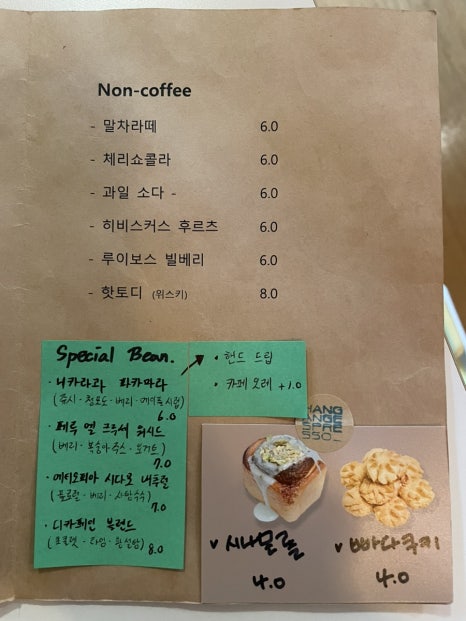 Non-coffee
- 말차라떼 6.0
- 체리쇼콜라 6.0
- 과일 소다 - 6.0
- 히비스커스 후르츠 6.0
- 루이보스 빌베리 6.0
- 핫토디 (위스키) 8.0
Special Bean.
· 니카라과 파카마라
(쥬시 · 청포도 · 베리 · 메이플시럽)
6.0
· 페루 엘 워시드
(베리 · 복숭아쥬스 · 요거트)
7.0
· 에티오피아 시다모 내추럴
(플로럴 · 베리 · 사탕수수)
7.0
· 디카페인 블렌드
(초콜렛 · 라임 · 흑설탕)
8.0
· 핸드 드립
· 카페 오레 +1.0
HANG
ANGE
SPRE
SSO_
v 시나몬롤
4.0
v 빠다쿠키
4.0